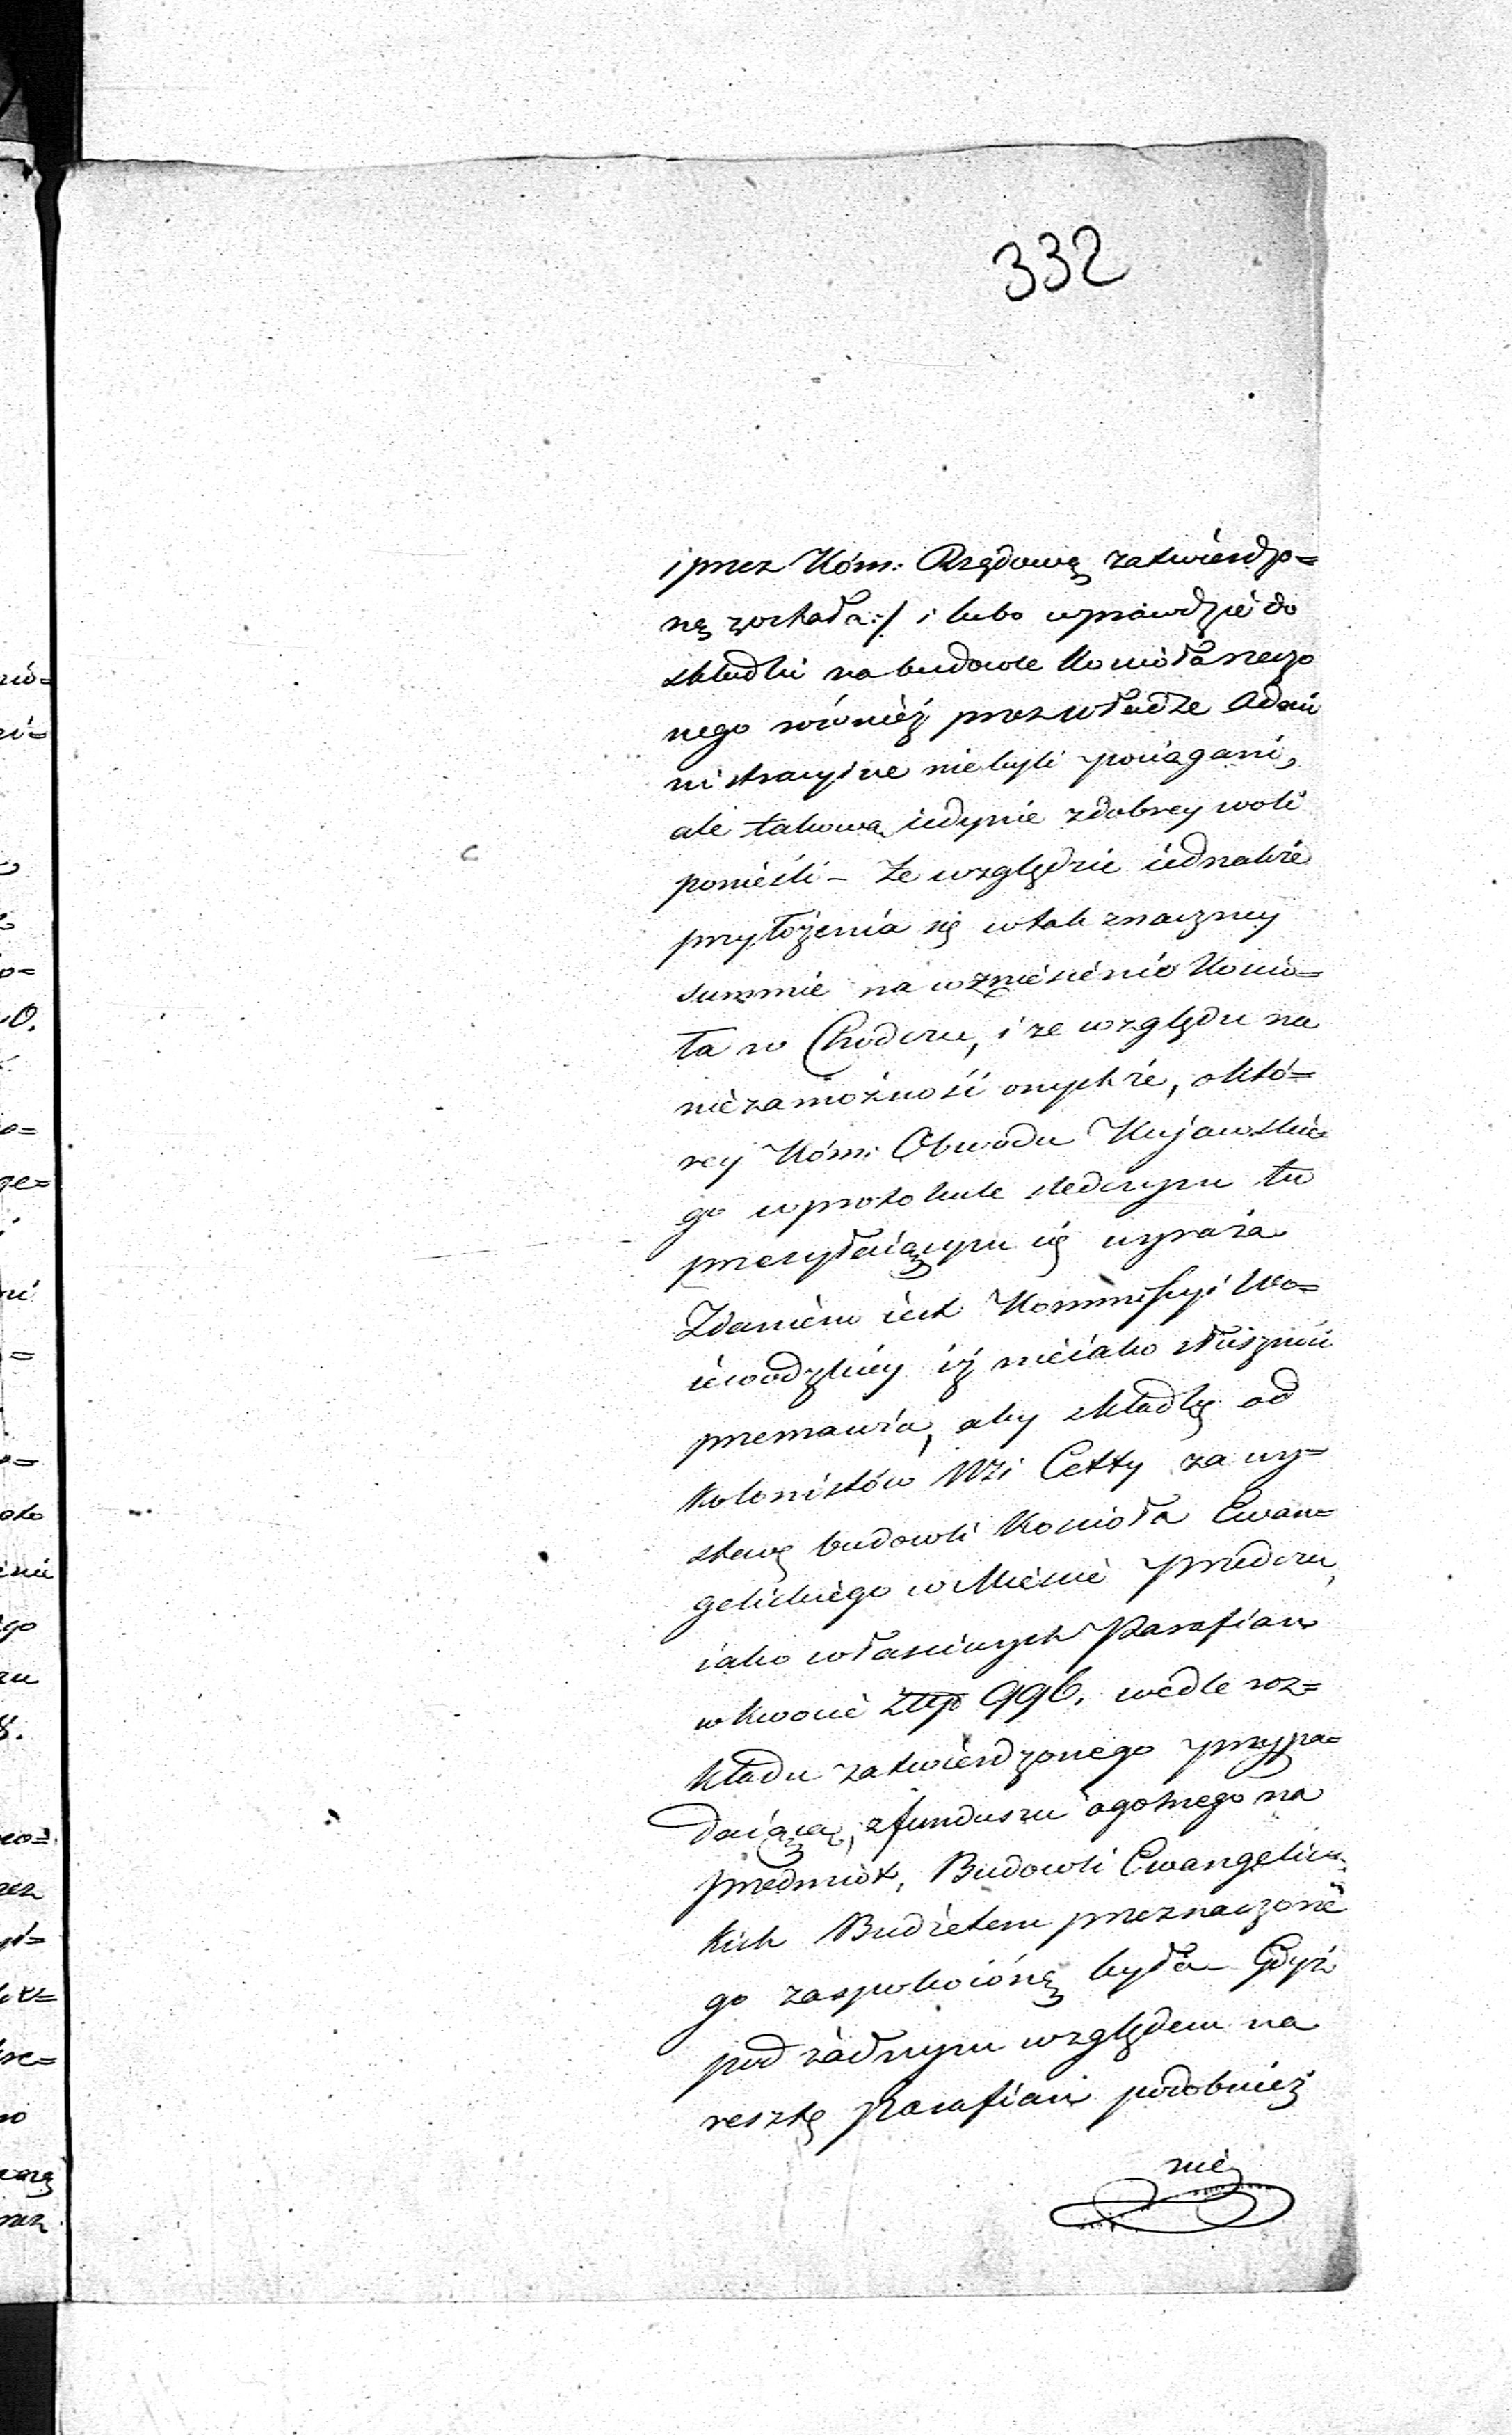 332
i przez Kóm: Rządową zatwierdzo=
ną została:/ i lubo wprawdzie do
składki na budowle Kościoła rzeczo
nego również przez władze Admi
nistracyine niebyli pociągani,
ale takową iedynie zdobrey woli
ponieśli – Ze względu iednakże
przyłożenia się wtak znaczney
summie na wzniesienie Kościo=
ła w Chodczu, i ze względu na
niezamożność onychże, októ=
rey Kóm: Obwodu Kujawskie=
go wprotokule śledczym tu
przesyłaiącym się wyraża
Zdaniem iest Kommissyi Wo=
iewodzkiey iż nieiako słuszność
przemawia, aby składkę od
Kolonistów Wsi Cetty za wy=
stawę budowli Kościoła Ewan=
gelickiego w Mieście Przedczu,
iako właściwych Parafian
w kwocie Złp 996. wedle roz=
kładu zatwierdzonego przypa=
daiącą, zfunduszu ogolnego na
przedmiot, Budowli Ewangelic=
kich Budżetem przeznaczone
go zaspokoioną była – Gdyż
pod żadnym względem na
resztę Parafian podobnież
nie